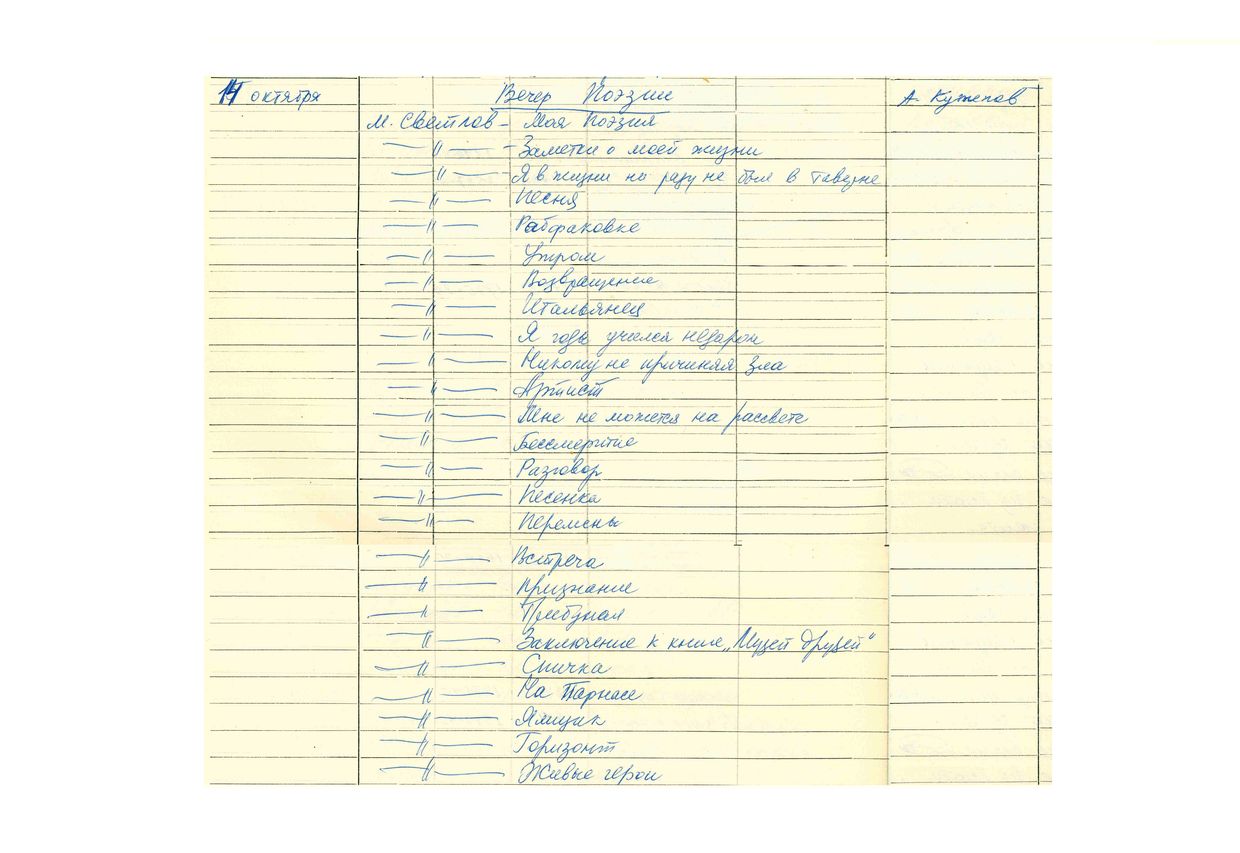 14 октября Вечер Поэзии А. Кужепов
М. Светлов - Моя Поэзия
— " — - Заметки о моей жизни
— " — Я в жизни ни разу не был в таверне
— " — Песня
— " — Рабфаковке
— " — Утром
— " — Возвращение
— " — Итальянец
— " — Я годы учился недаром
— " — Никому не причиняя зла
— " — Артист
— " — Мне не можется на рассвете
— " — Бессмертие
— " — Разговор
— " — Песенка
— " — Перемены
— " — Встреча
— " — Признание
— " —
— " — Заключение к книге „Музей друзей"
— " — Спичка
— " — На Парнасе
— " — Ямщик
— " — Горизонт
— " — Живые герои